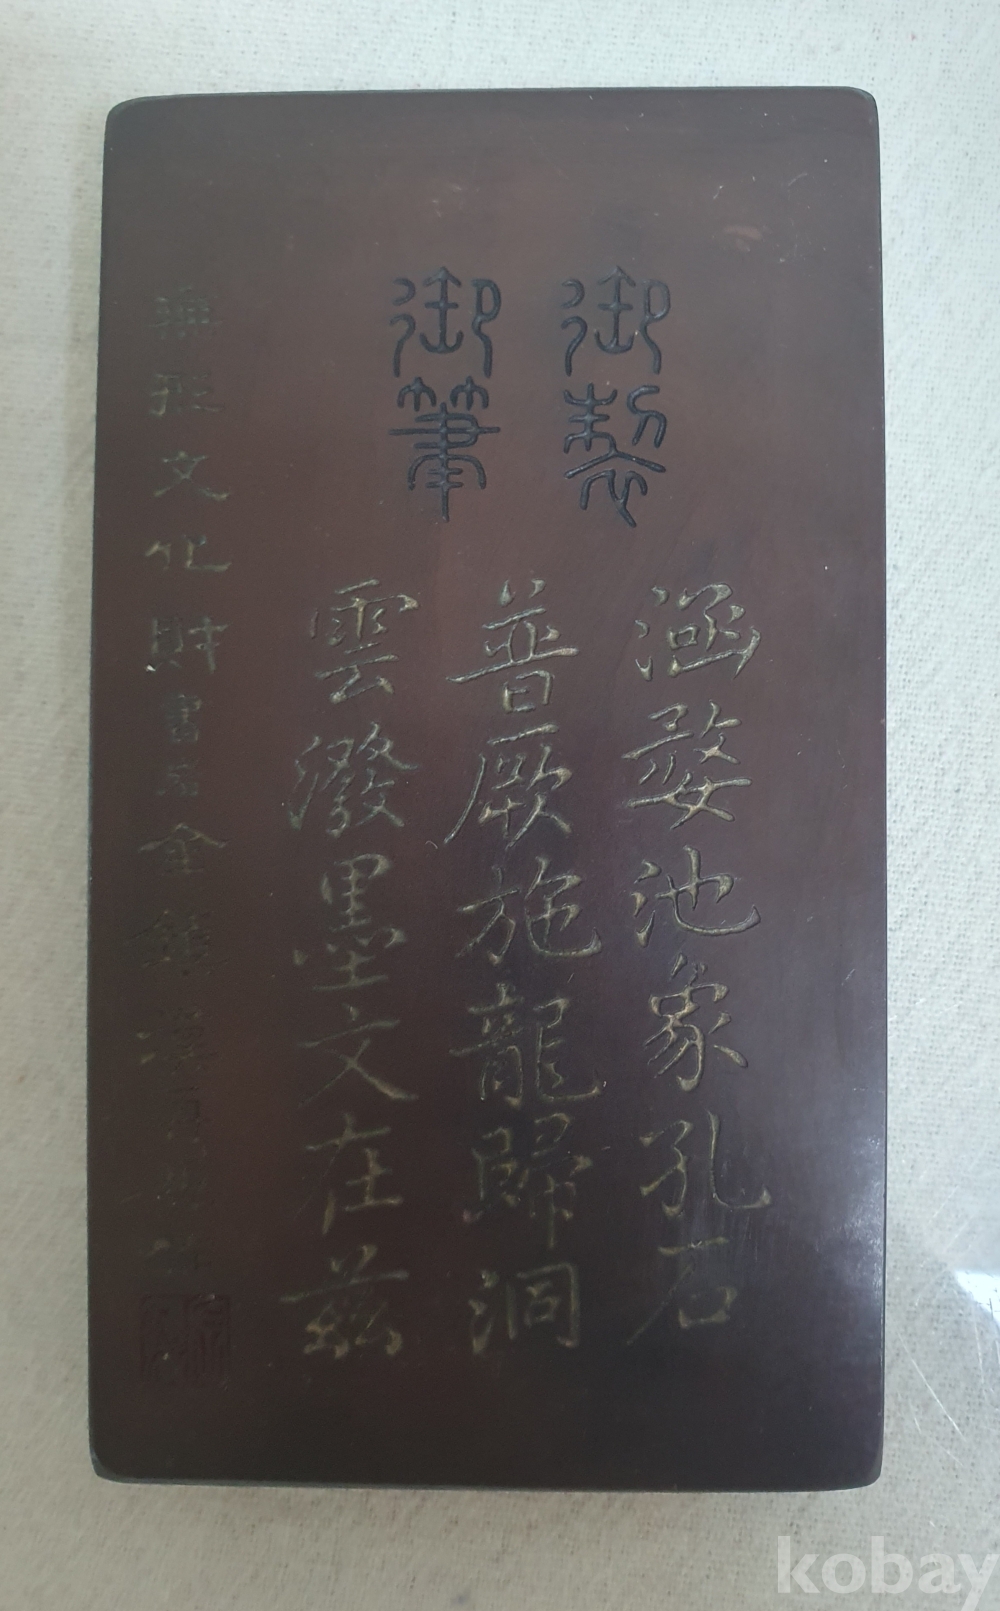 御製
御筆
涵婺池象孔石
普厥施龍歸洞
雲潑墨文在茲
無形文化財書刻金
kobay